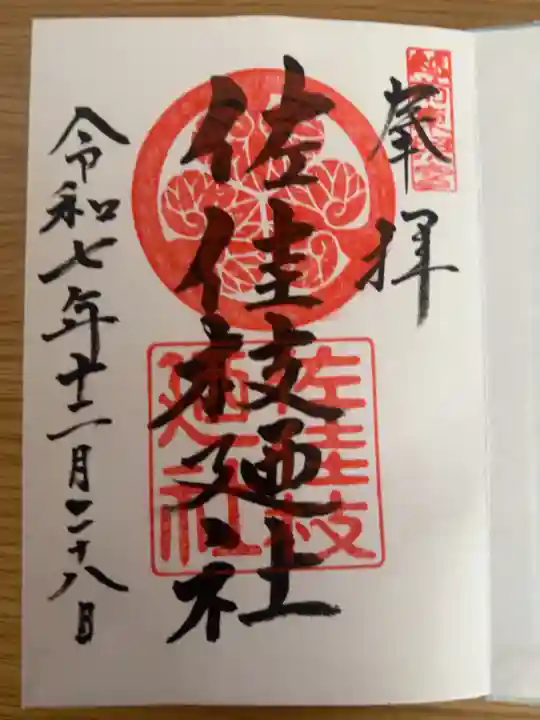 越前東照宮
奉拝
佐佳枝廼社
佐佳枝
廼社
令和七年十二月二十八日